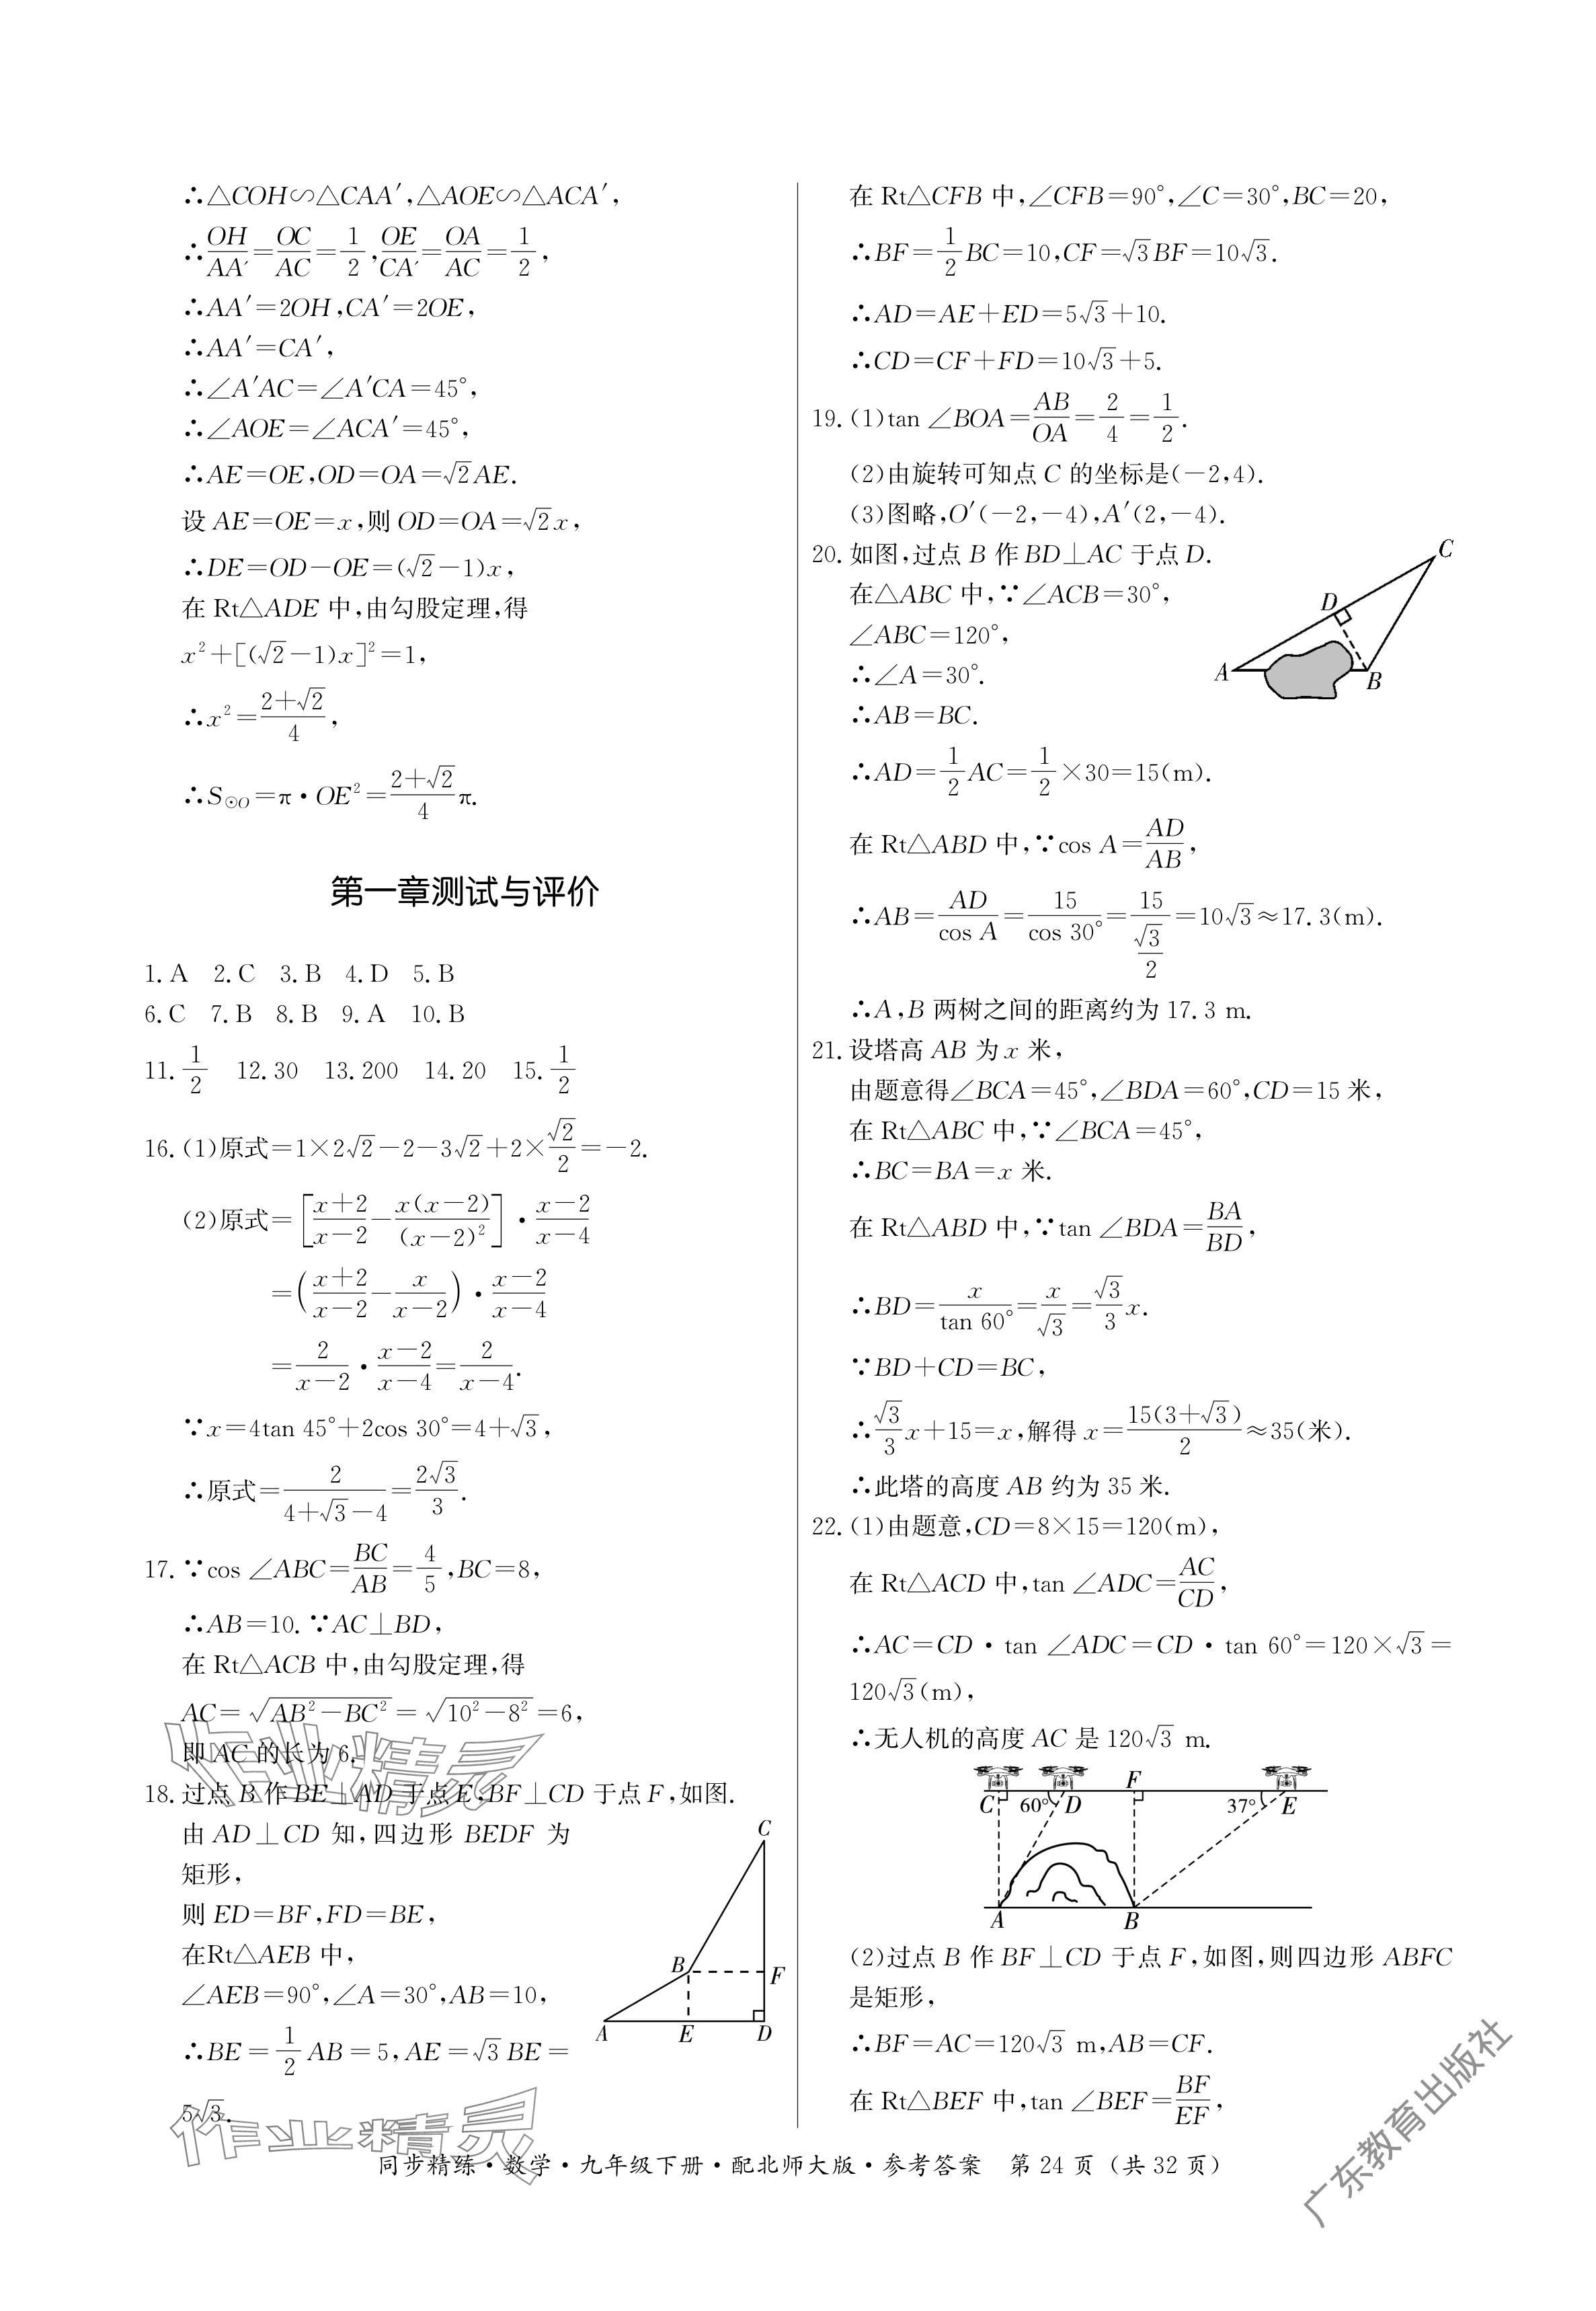 ∴△COH∽△CAA′,△AOE∽△ACA′,
∴OH/AA′=OC/AC=1/2,OE/CA′=OA/AC=1/2,
∴AA′=2OH,CA′=2OE,
∴AA′=CA′,
∴∠A′AC=∠A′CA=45°,
∴∠AOE=∠ACA′=45°,
∴AE=OE,OD=OA=√2AE.
设 AE=OE=x,则 OD=OA=√2x,
∴DE=OD−OE=(√2−1)x,
在 Rt△ADE 中,由勾股定理,得
x²+[(√2−1)x]²=1,
∴x²=(2+√2)/4,
∴S⊙O=π·OE²=(2+√2)/4π.
第一章测试与评价
1.A 2.C 3.B 4.D 5.B
6.C 7.B 8.B 9.A 10.B
11.1/2 12.30 13.200 14.20 15.1/2
16.(1)原式=1×2√2−2−3√2+2×√2/2=−2.
(2)原式=[(x+2)/(x−2)−x(x−2)/(x−2)²]·(x−2)/(x−4)
=((x+2)/(x−2)−x/(x−2))·(x−2)/(x−4)
=2/(x−2)·(x−2)/(x−4)=2/(x−4).
∵x=4tan 45°+2cos 30°=4+√3,
∴原式=2/(4+√3−4)=2√3/3.
17.∵cos ∠ABC=BC/AB=4/5,BC=8,
∴AB=10.∵AC⊥BD,
在 Rt△ACB 中,由勾股定理,得
AC=√(AB²−BC²)=√(10²−8²)=6,
即 AC 的长为 6.
18.过点 B 作 BE⊥AD 于点 E,BF⊥CD 于点 F,如图.
由 AD⊥CD 知,四边形 BEDF 为
矩形,
则 ED=BF,FD=BE,
在Rt△AEB 中,
∠AEB=90°,∠A=30°,AB=10,
∴BE=1/2AB=5,AE=√3BE=
5√3.
C
B
F
A
E
D
作业精灵
作业精灵
在 Rt△CFB 中,∠CFB=90°,∠C=30°,BC=20,
∴BF=1/2BC=10,CF=√3BF=10√3.
∴AD=AE+ED=5√3+10.
∴CD=CF+FD=10√3+5.
19.(1)tan ∠BOA=AB/OA=2/4=1/2.
(2)由旋转可知点 C 的坐标是(−2,4).
(3)图略,O′(−2,−4),A′(2,−4).
20.如图,过点 B 作 BD⊥AC 于点 D.
在△ABC 中,∵∠ACB=30°,
∠ABC=120°,
∴∠A=30°.
∴AB=BC.
C
D
A
B
∴AD=1/2AC=1/2×30=15(m).
在 Rt△ABD 中,∵cos A=AD/AB,
∴AB=AD/cos A=15/cos 30°=15/(√3/2)=10√3≈17.3(m).
∴A,B 两树之间的距离约为 17.3 m.
21.设塔高 AB 为 x 米,
由题意得∠BCA=45°,∠BDA=60°,CD=15 米,
在 Rt△ABC 中,∵∠BCA=45°,
∴BC=BA=x 米.
在 Rt△ABD 中,∵tan ∠BDA=BA/BD,
∴BD=x/tan 60°=x/√3=√3/3x.
∵BD+CD=BC,
∴√3/3x+15=x,解得 x=15(3+√3)/2≈35(米).
∴此塔的高度 AB 约为 35 米.
22.(1)由题意,CD=8×15=120(m),
在 Rt△ACD 中,tan ∠ADC=AC/CD,
∴AC=CD·tan ∠ADC=CD·tan 60°=120×√3=
120√3(m),
∴无人机的高度 AC 是 120√3 m.
F
C 60° D 37° E
A B
(2)过点 B 作 BF⊥CD 于点 F,如图,则四边形 ABFC
是矩形,
∴BF=AC=120√3 m,AB=CF.
在 Rt△BEF 中,tan ∠BEF=BF/EF,
同步精练·数学·九年级下册·配北师大版·参考答案 第 24 页（共 32 页）
广东教育出版社